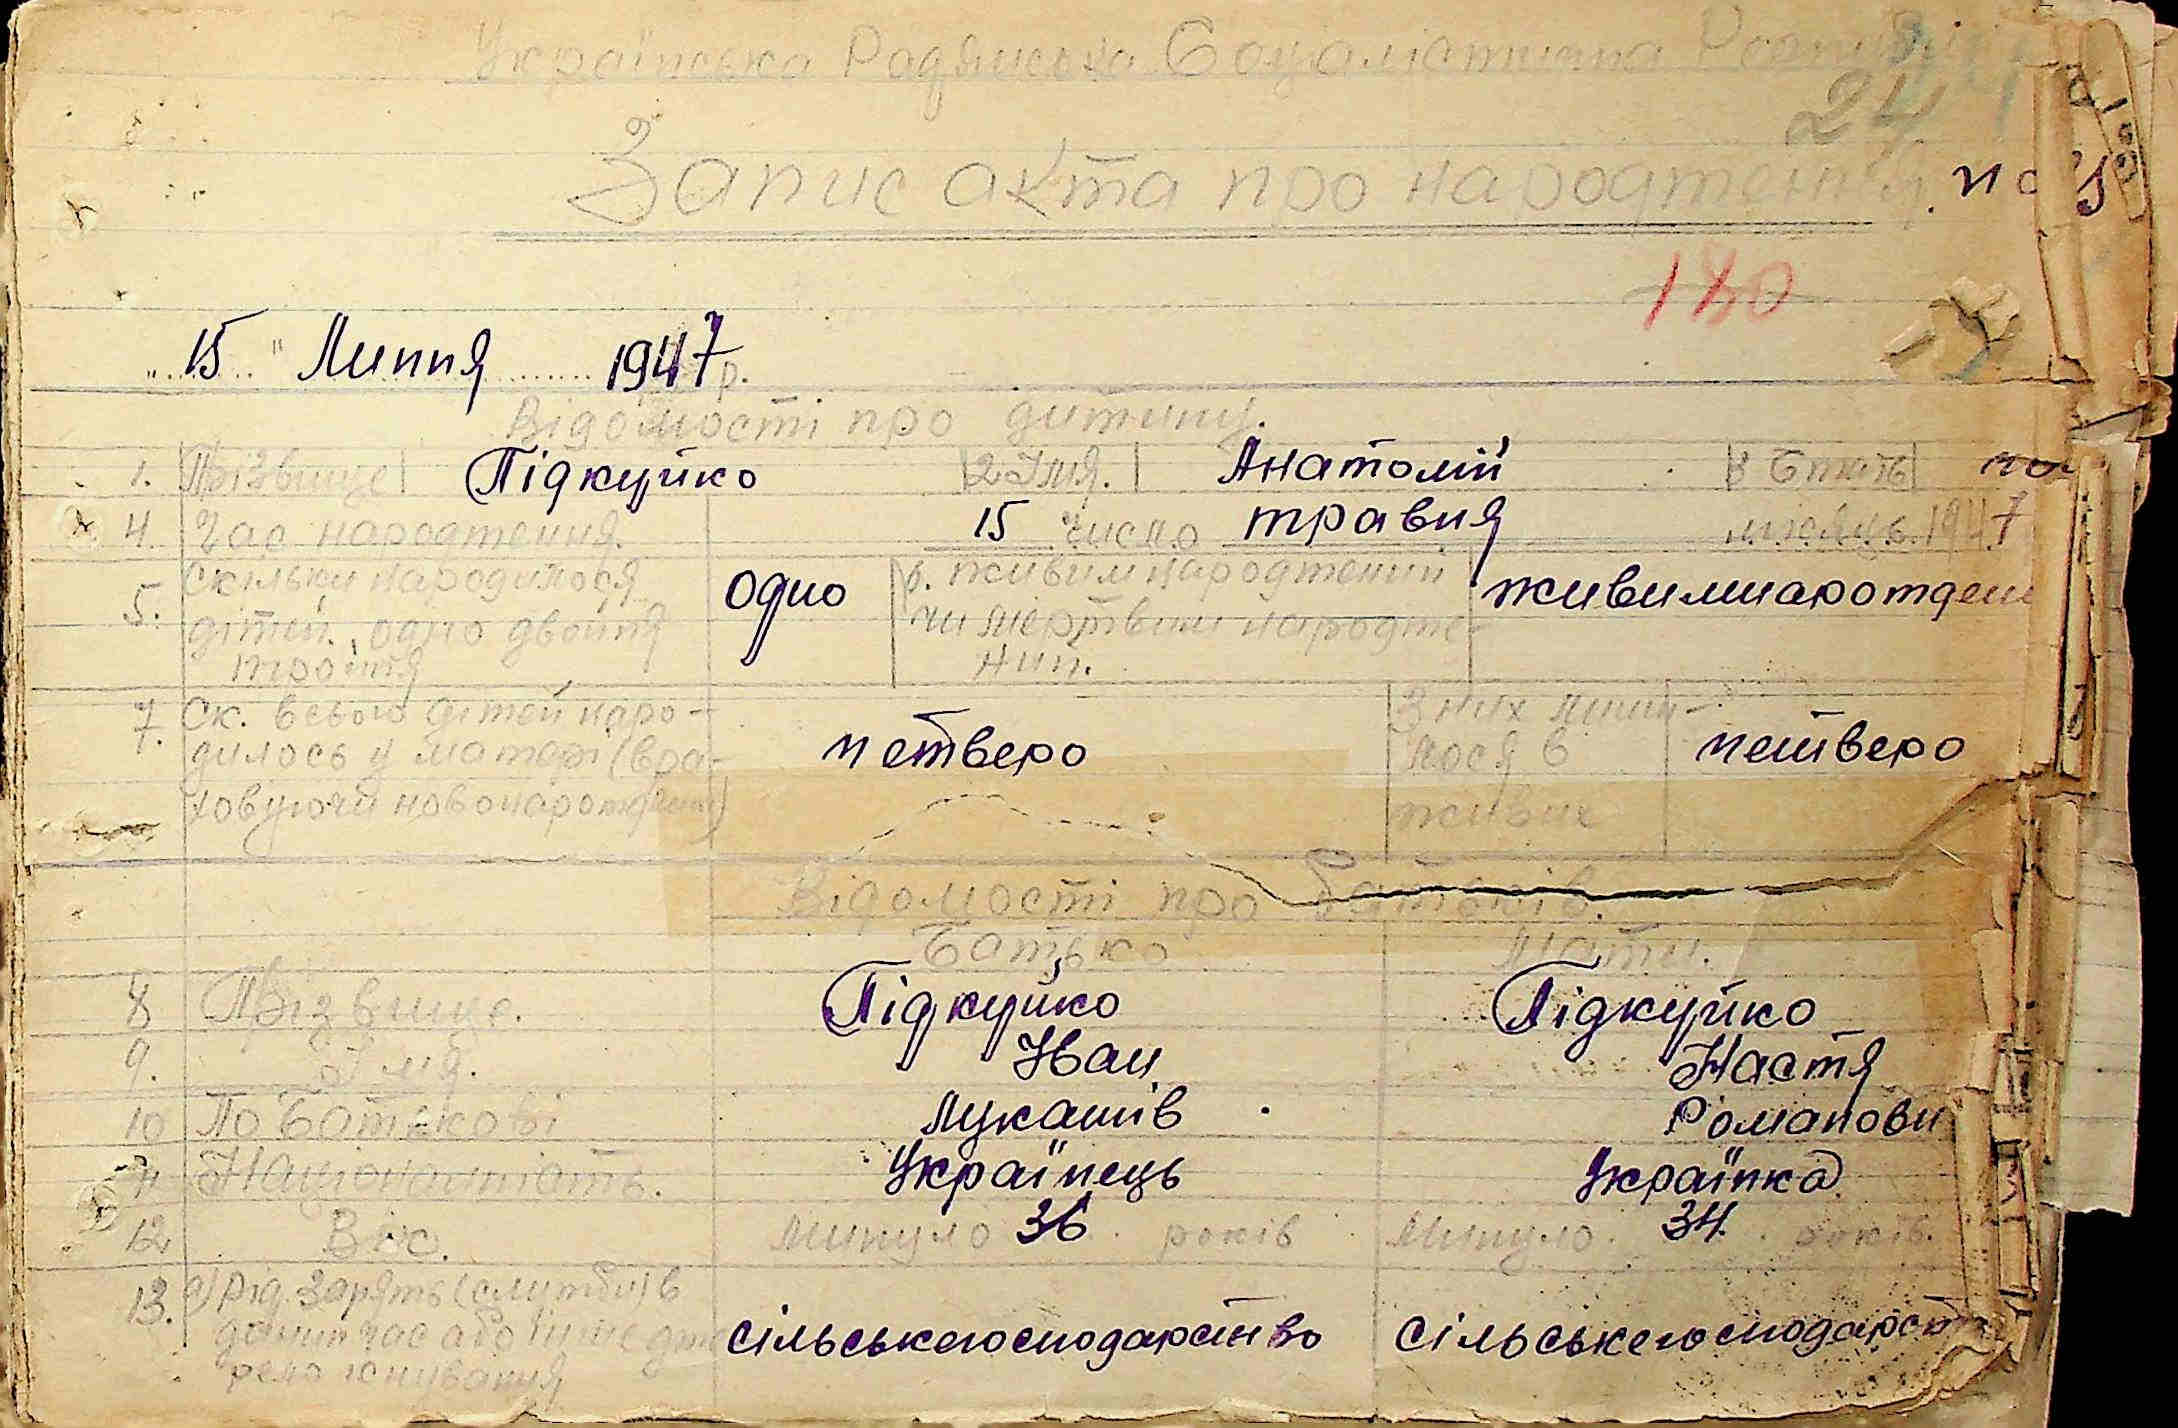 Українська Радянська Соціалістична
24
Запис акта про народження. №
180
"15" Липня 1947 р.
Відомості про дитину.
1. Прізвище Підкуйко 2 Імя. Анатолій 3 Стать
4. Час народження. 15 число травня місяць 1947
5. Скільки народилося дітей, одно двойня тройня одно 6. живим народжений чи мертвим народже- ний. живимнарождени
7. Ск. всього дітей наро- дилось у матері (вра- ховуючи новонарожден) четверо З них лиши- лося в живих четверо
Відомості про батьків.
Батько Мати.
8 Прізвище. Підкуйко Підкуйко
9. Імя. Іван Настя
10 По батькові Лукашів Романовн
11 Національність. Українець Українка
12 Вік. Минуло 36 років Минуло 34 років.
13. а) Рід занять (служби) в даний час або інше дже рело існування сільськегосподарство сільськегосподарст